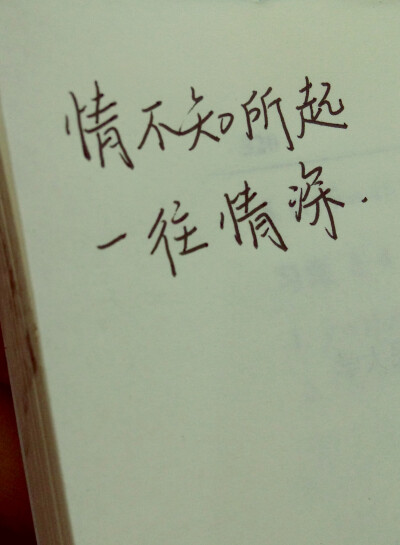 情不知所起
一往情深.